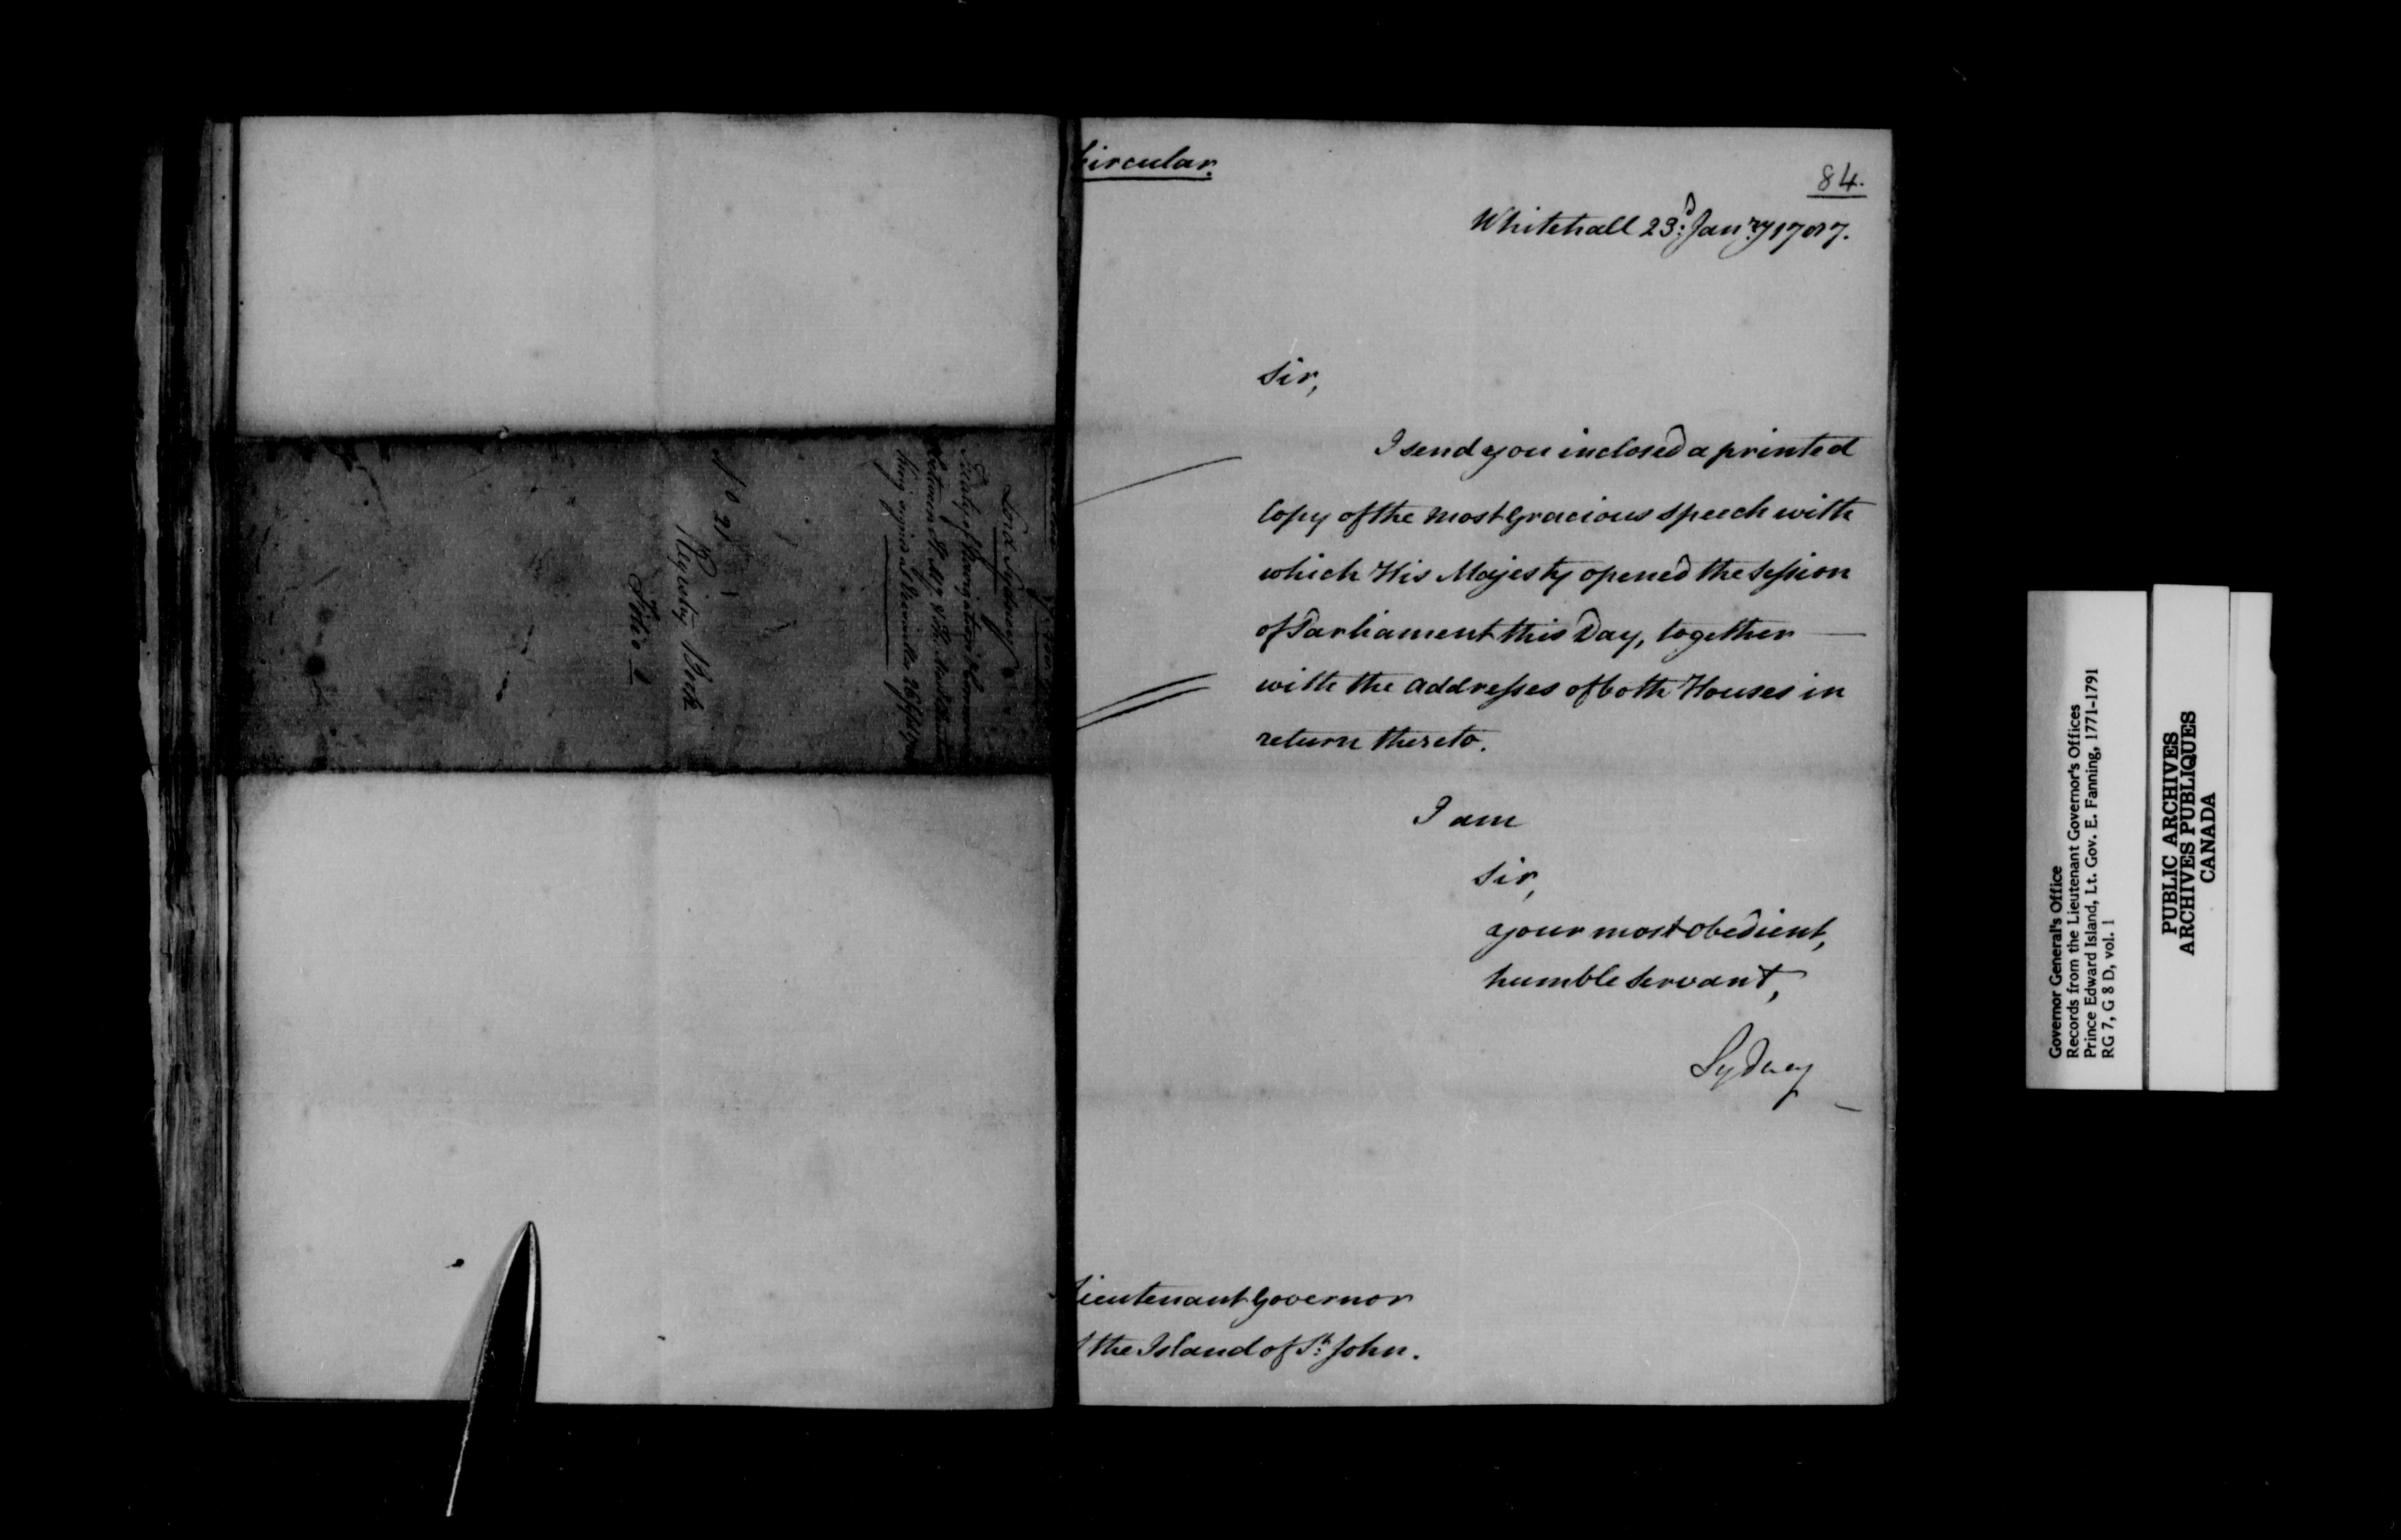 Lord Sydney
Treaty of Navigation & Commerce
between H. My. & The Most Christian
King signed at Versailles 26 Sept.
No 21
Registry Book
Folio
Circular.
84.
Whitehall 23.d Jan.ry 1787.
Sir,
I send you inclosed a printed
Copy of the most Gracious Speech with
which His Majesty opened the Session
of Parliament this Day, together
with the Addresses of both Houses in
return thereto.
I am
Sir,
your most obedient,
humble Servant,
Sydney
Lieutenant Governor
the Island of St. John.
Governor General's Office
Records from the Lieutenant Governor's Offices
Prince Edward Island, Lt. Gov. E. Fanning, 1771-1791
RG 7, G 8 D, vol. 1
PUBLIC ARCHIVES
ARCHIVES PUBLIQUES
CANADA